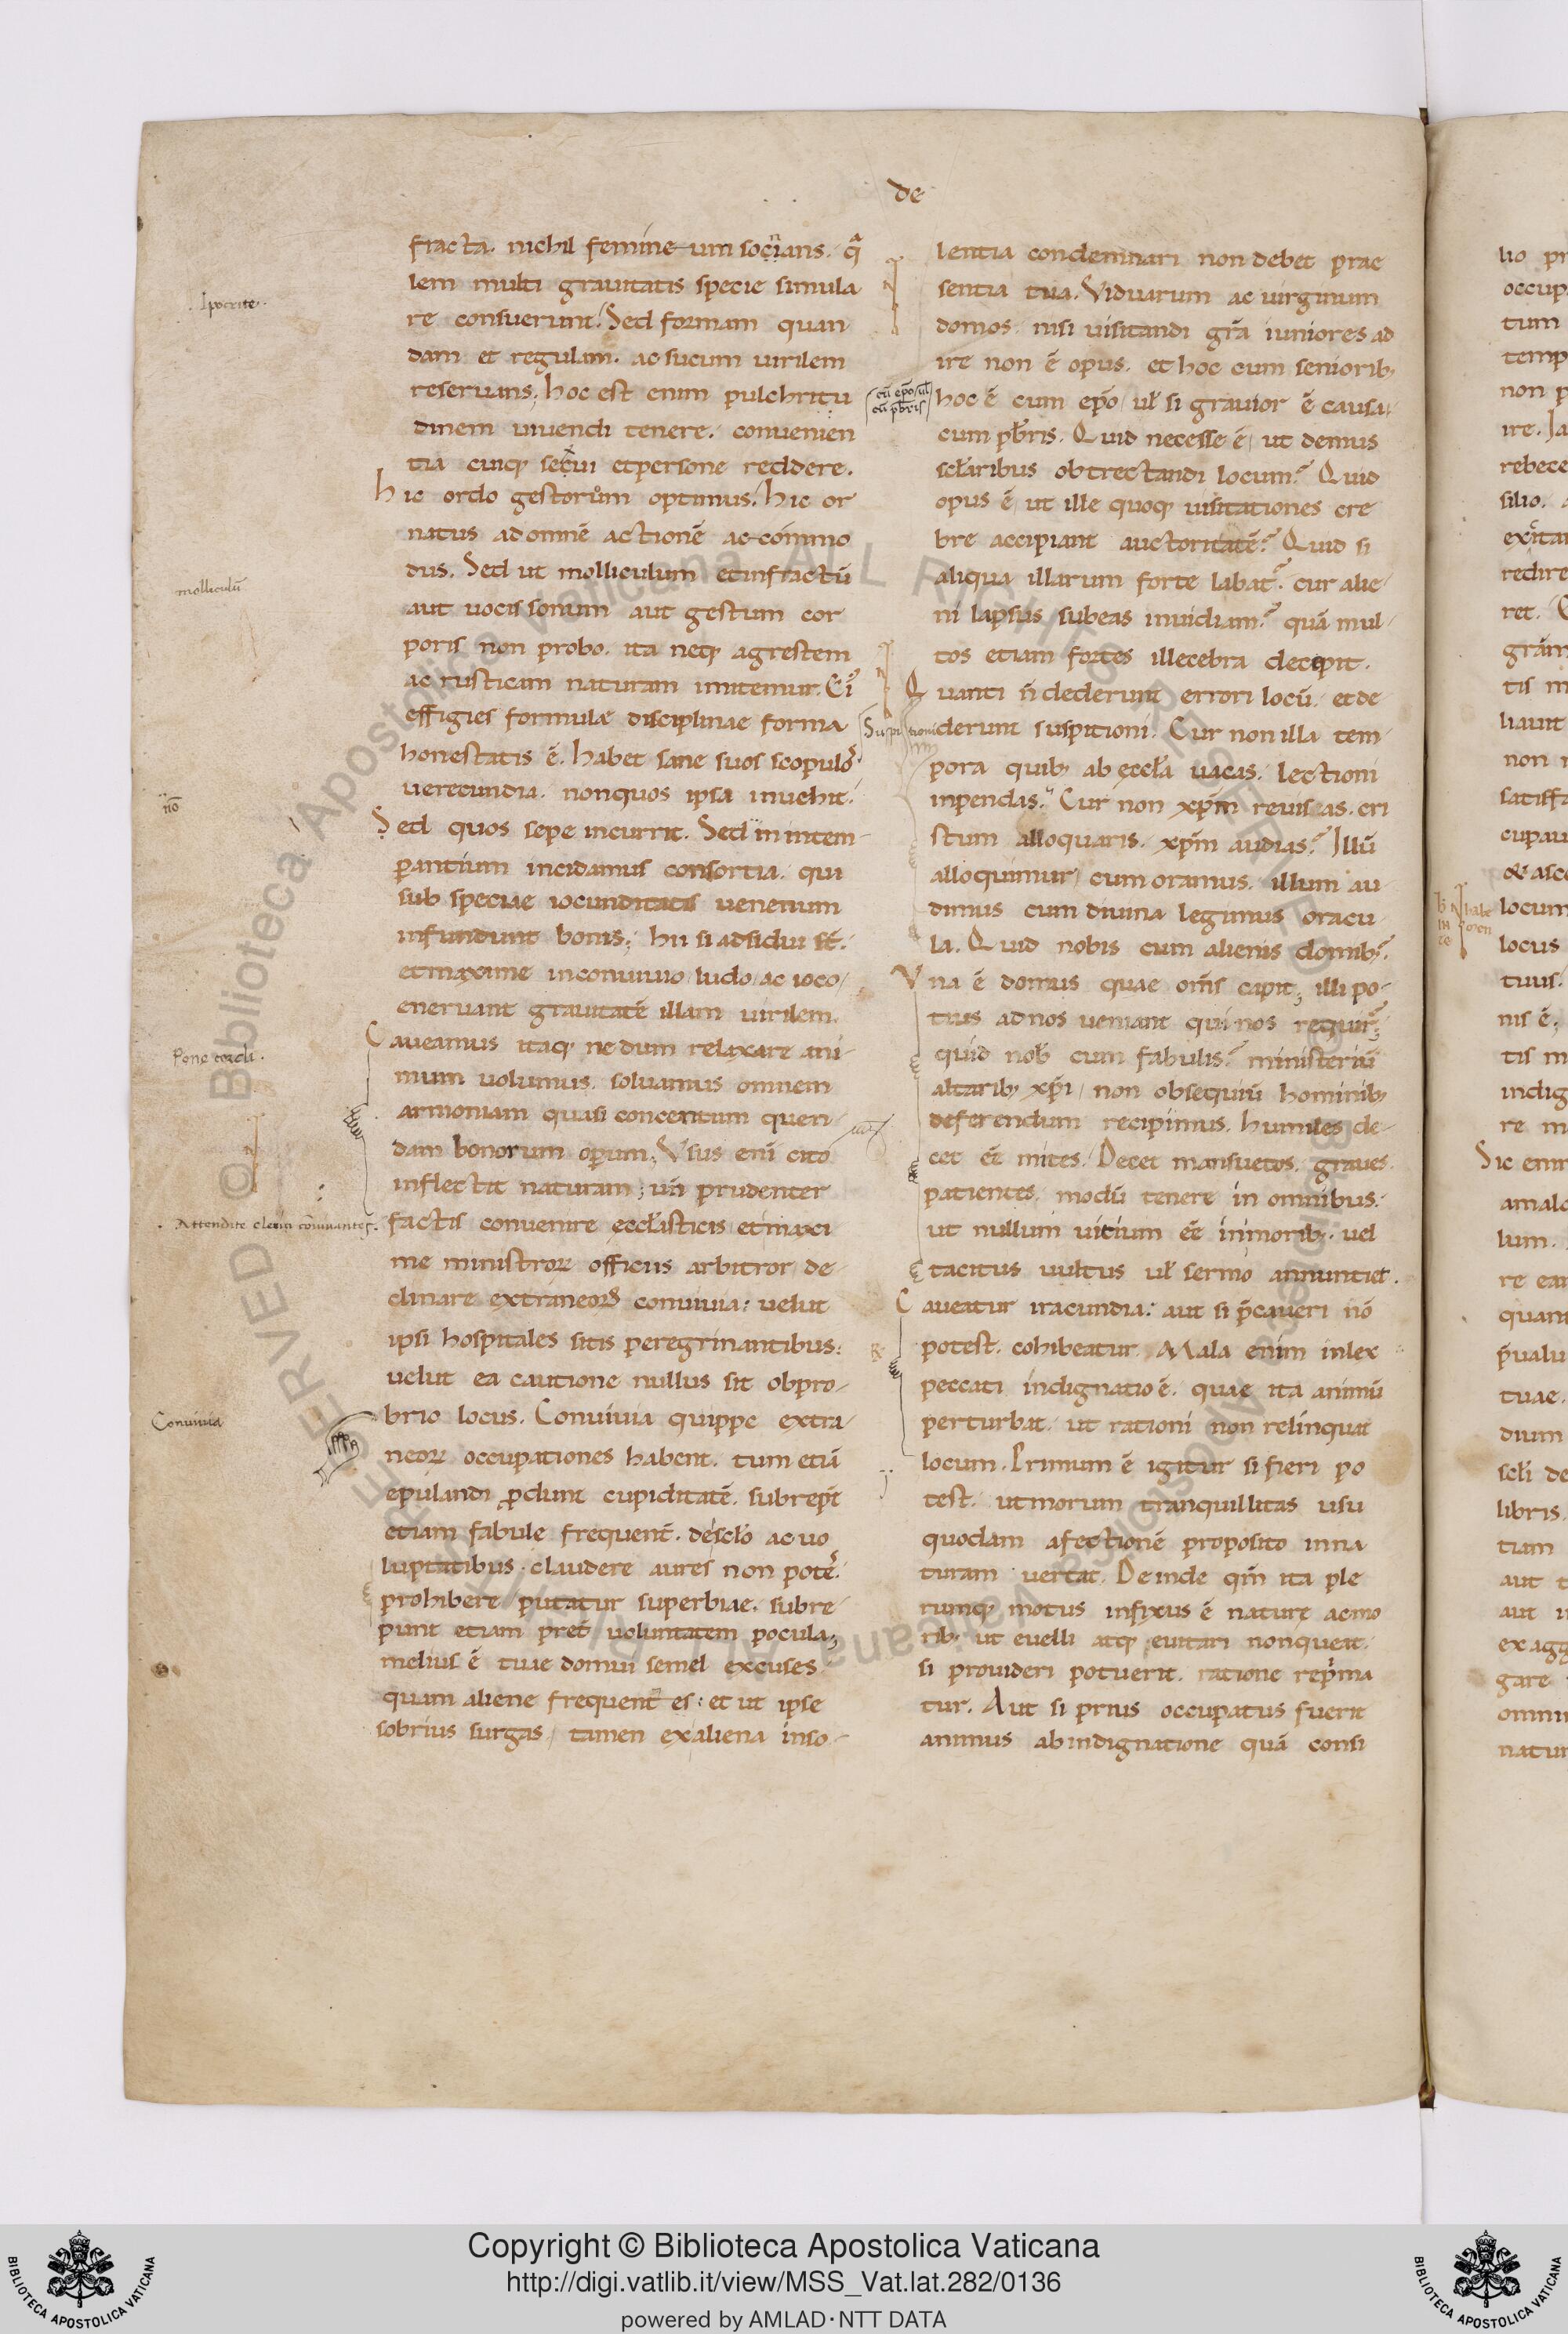 de
fracta. nichil femine-um socians. qͣ
lem multi grauitatis specie simula
re consuerunt. Sed formam quan
dam et regulam. ac sucum uirilem
reseruans; hoc est enim pulchritu
dinem uiuendi tenere. conuenien
tia cuiq; sexui et persone reddere.
hic ordo gestorum optimus. hic or
natus ad omnē actionē ac-commo
dus. Sed ut molliculum et infractū
aut uocis sonum aut gestum cor
poris non probo. ita neq; agrestem
ac rusticam naturam imitemur. Ei᾽
effigies formulae disciplinae forma
honestatis ē. habet sane suos scopulos
uerecundia. non quos ipsa inuehit.
Sed quos sepe incurrit. Sed in intem-
perantium incidamus consortia. qui
sub speciae iocunditatis uenenum
infundunt bonis; hii si adsidui st̄.
et maxime in conuiuio ludo ac ioco
eneruant grauitatē illam uirilem.
Caueamus itaq; ne dum relaxare ani-
mum uolumus. soluamus omnem
armoniam quasi concentum quen-
dam bonorum operum; Vsus enī cito
inflectit naturam; un̄ prudenter
factis conuenire eccl̄isticis et maxi
me ministroꝝ officiis arbitror de
clinare extraneoꝝ conuiuia: uelut
ipsi hospitales sitis peregrinantibus:
uelut ea cautione nullus sit obpro-
brio locus. Conuiuia quippe extra-
neoꝝ occupationes habent. tum etiā
epulandi produnt cupiditatē. subrep̄t
etiam fabule frequent̄. de scl̄o ac uo
luptatibus. claudere aures non potes.
prohibere putatur superbiae. subre-
punt etiam pret̄ uoluntatem pocula;
melius ē tuae domui semel excuses
quam aliene frequent̄ es: et ut ipse
sobrius surgas, tamen ex aliena inso-
lentia condemnari non debet prae
sentia tua. Viduarum ac uirginum
domos. nisi uisitandi gr̄a iuniores ad
ire non ē opus. et hoc cum seniorib;
hoc ē cum ep̄o ul̄ si grauior ē causa.
cum pb̄ris. Quid necesse ē ut demus
scl̄aribus obtrectandi locum? Quid
opus ē ut ille quoq; uisitationes cre
bre accipiant auctoritatē? Quid si
aliqua illarum forte labat̄? cur alie-
ni lapsus subeas inuidiam? quā mul-
tos etiam fortes illecebra decepit.
Quanti n̄ dederunt errori locū. et de
derunt suspitioni. Cur non illa tem-
pora quib; ab eccl̄a uacas. lectioni
inpendas? Cur non xp̄m reuisas. cri
stum alloquaris. xp̄m audias? Illū
alloquimur, cum oramus. illum au
dimus cum diuina legimus oracu-
la. Quid nobis cum alienis domib;?
Vna ē domus quae om̄s capit; illi po-
tius ad nos ueniant qui nos requir̄;
quid nob̄ cum fabulis? ministeriū
altarib; xp̄i, non obsequiū hominib;
deferendum recipimus. humiles de-
cet ēē mites. Decet mansuetos. graues.
patientes. modū tenere in omnibus:
ut nullum uitium ēē in morib;. uel
tacitus uultus ul̄ sermo annuntiet.
Caueatur iracundia: aut si p̄caueri nō
potest. cohibeatur. Mala enim inlex
peccati indignatio ē. quae ita animū
perturbat. ut rationi non relinquat
locum. Primum ē igitur si fieri po
test. ut morum tranquillitas usu
quodam afectionē proposito in na
turam uertat. Deinde qm̄ ita ple
rumq; motus infixus ē nature ac mo
rib; ut euelli atq; euitari non queat.
si prouideri potuerit. ratione reprima
tur. Aut si prius occupatus fuerit
animus ab indignatione quā consi
Ipocrite.
molliculū
nō
Attendite clerici
Conuiuia
cū ep̄o ul̄
cū pb̄ris
Suspitioni
lio
occup
tum
temp
non p
ire. Ia
rebece
silio.
redire
ret.
tis
non
locum
locus
tuus.
nis ē;
tis
indig
re
Sic
lum.
quant
tuae.
dium
libris.
tiam
aut
aut
ex agg
gare
omni
natur
Copyright © Biblioteca Apostolica Vaticana
http://digi.vatlib.it/view/MSS_Vat.lat.282/0136
powered by AMLAD·NTT DATA
BIBLIOTECA APOSTOLICA VATICANA
BIBLIOTECA APOSTOLICA VATICANA